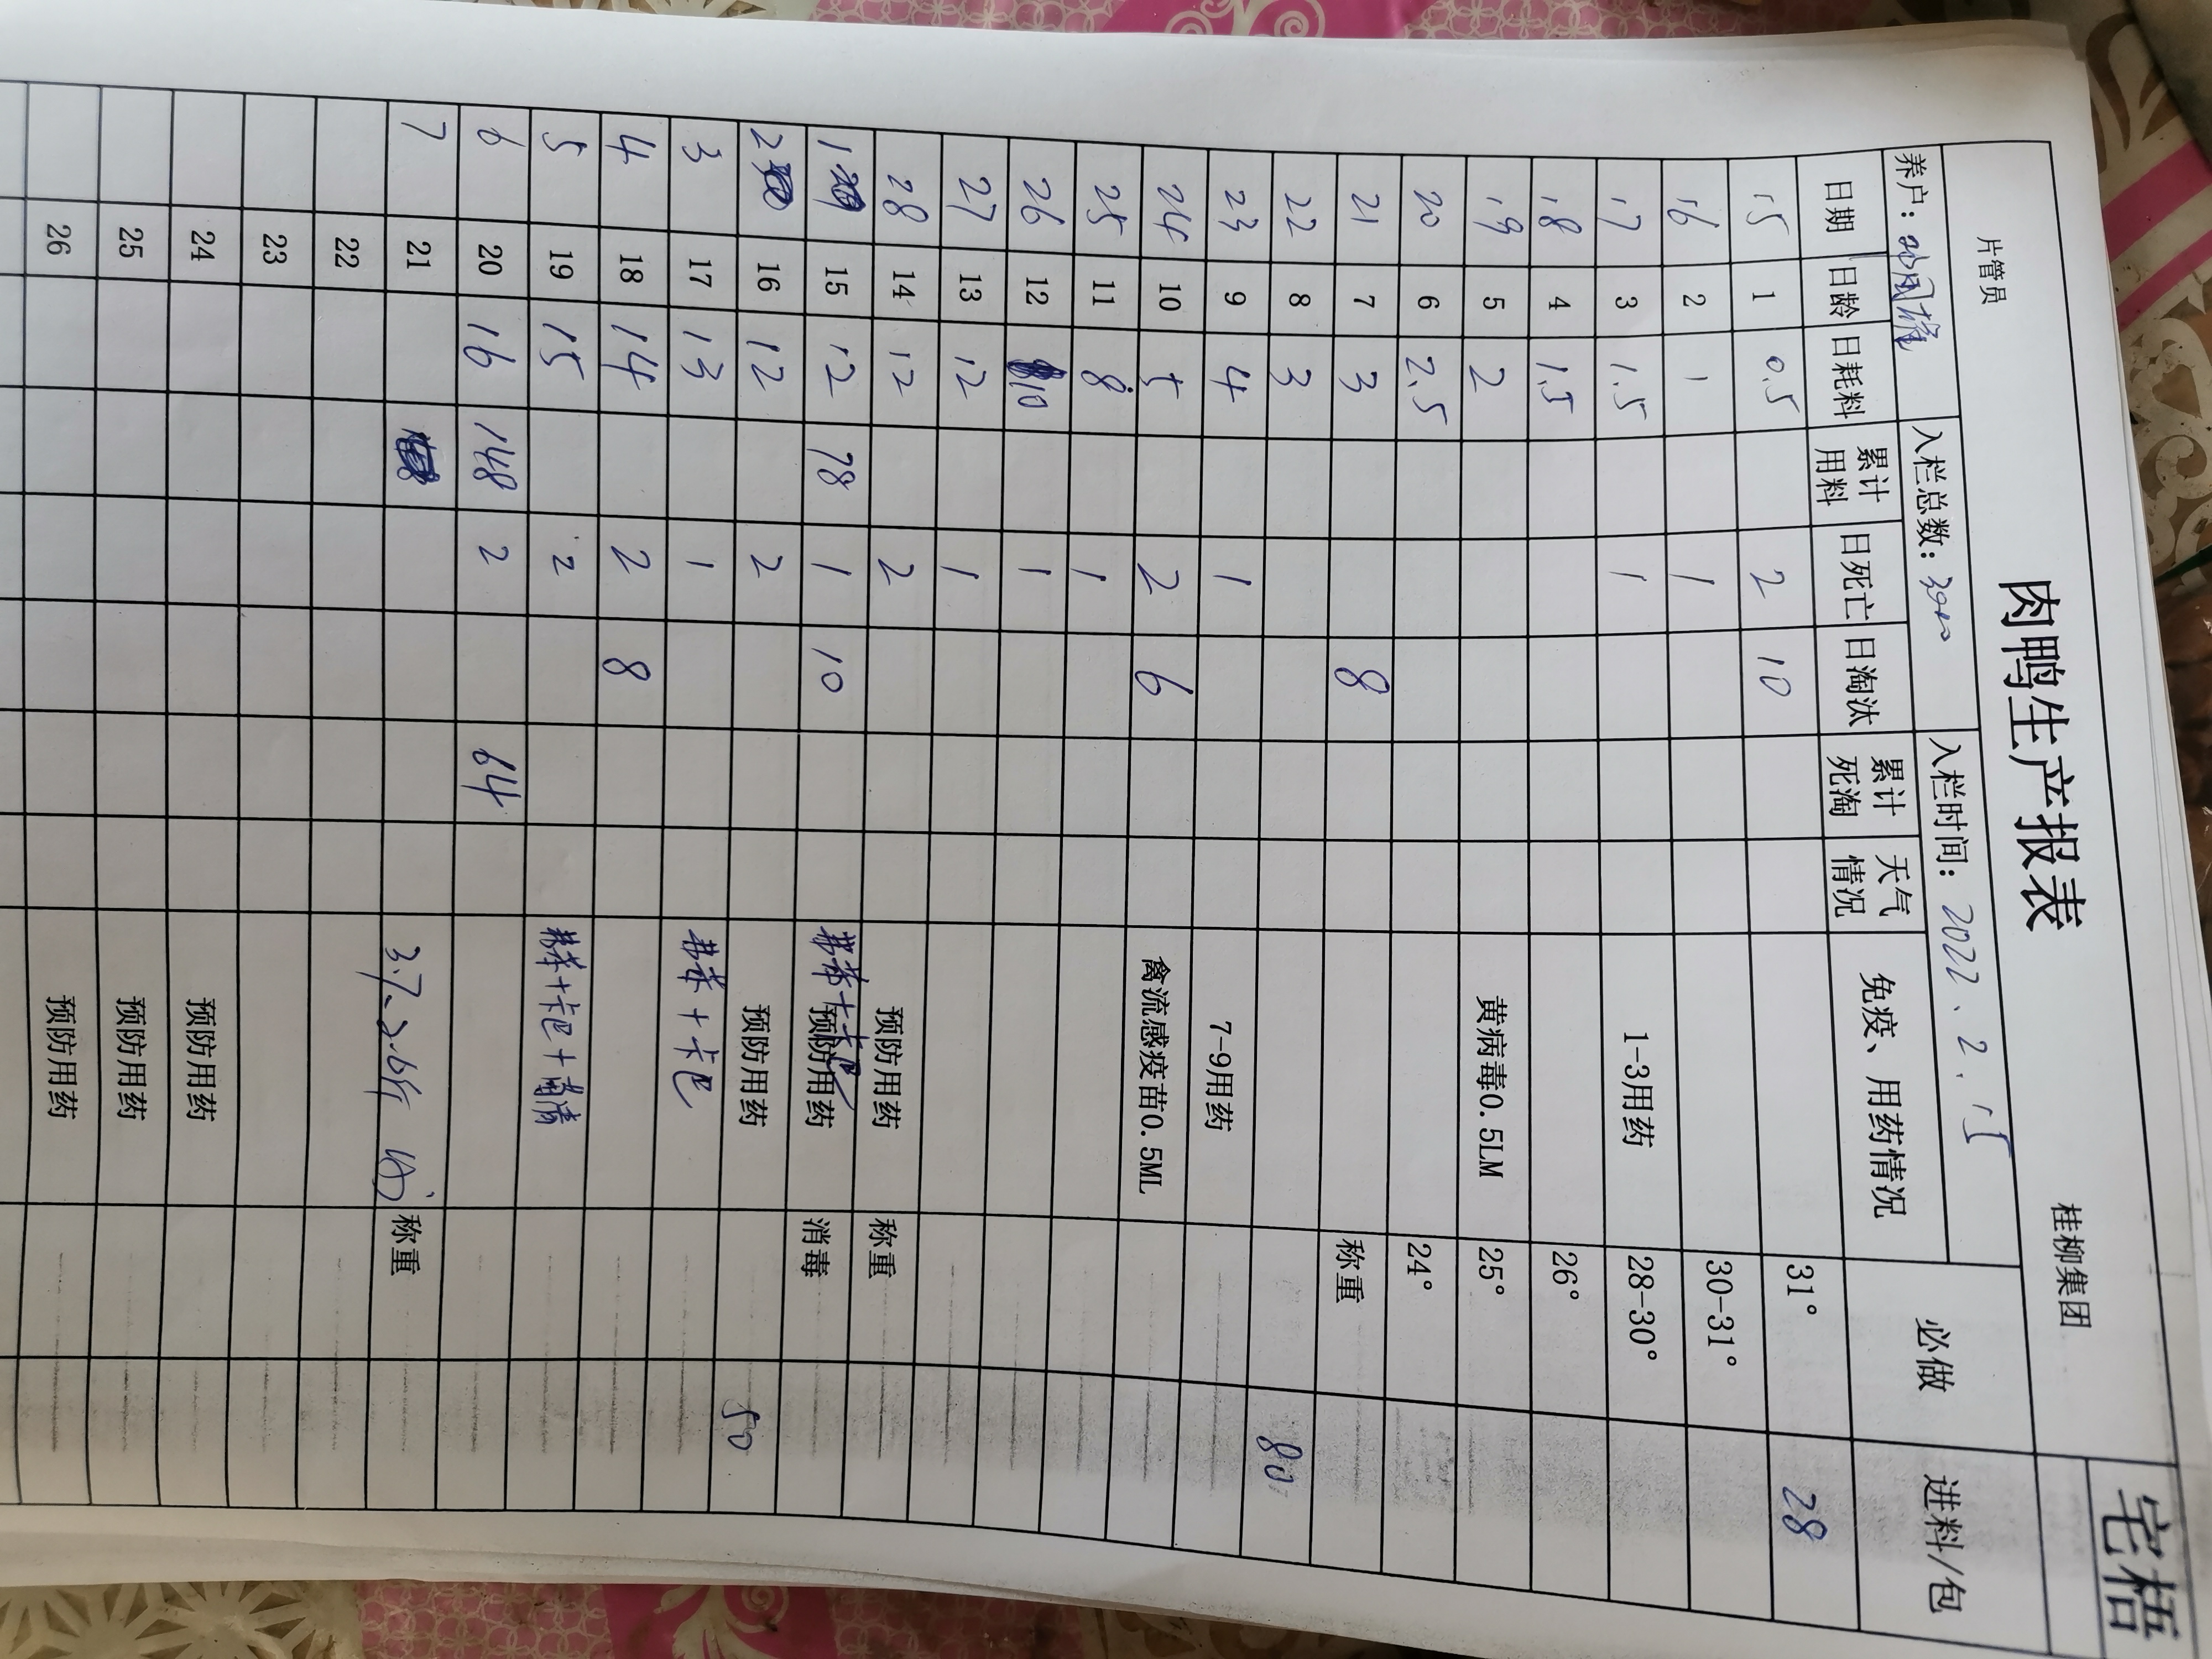 宅梧
肉鸭生产报表
桂柳集团
片管员
养户：
入栏总数：
入栏时间：2022、2、15
日期 日龄 日耗料 累计用料 日死亡 日淘汰 累计死淘 天气情况 免疫、用药情况 必做 进料/包
15 1 0.5 2 10 31° 28
16 2 1 1 30-31°
17 3 1.5 1 1-3用药 28-30°
18 4 1.5 26°
19 5 2 黄病毒0.5LM 25°
20 6 2.5 24°
21 7 3 8 称重
22 8 3 80
23 9 4 1 7-9用药
24 10 5 2 6 禽流感疫苗0.5ML
25 11 8 1
26 12 10 1
27 13 12 1
28 14 12 2 预防用药 称重
1 15 12 78 1 10 卡巴 预防用药 消毒
2 16 12 2 预防用药 50
3 17 13 1 +卡巴
4 18 14 2 8
5 19 15 2 +卡巴+
6 20 16 148 2 64
7 21 3.7、2.6斤 称重
22
23
24 预防用药
25 预防用药
26 预防用药